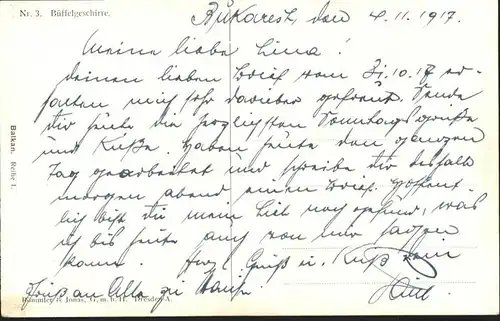 Nr. 3. Büffelgeschirre.
Bukarest, den 4.11.1917.
Meine liebe Lina!
deinen lieben Brief vom 31.10.17 er-
halten mich sehr darüber gefreut. Sende
dir heute die herzlichsten Sonntagsgrüße
und Küße. Haben heute den ganzen
Tag gearbeitet und schreibe dir deshalb
morgen abend einen Brief. Hoffent-
lich bist du mein Lieb noch gesund, was
ich bis heute auch von mir sagen
kann. Herz. Gruß u. Kuß dein
Gruß an Alle zu Hause.
Balkan. Reihe I.
Bäumler & Jonas, G. m. b. H. Dresden-A.